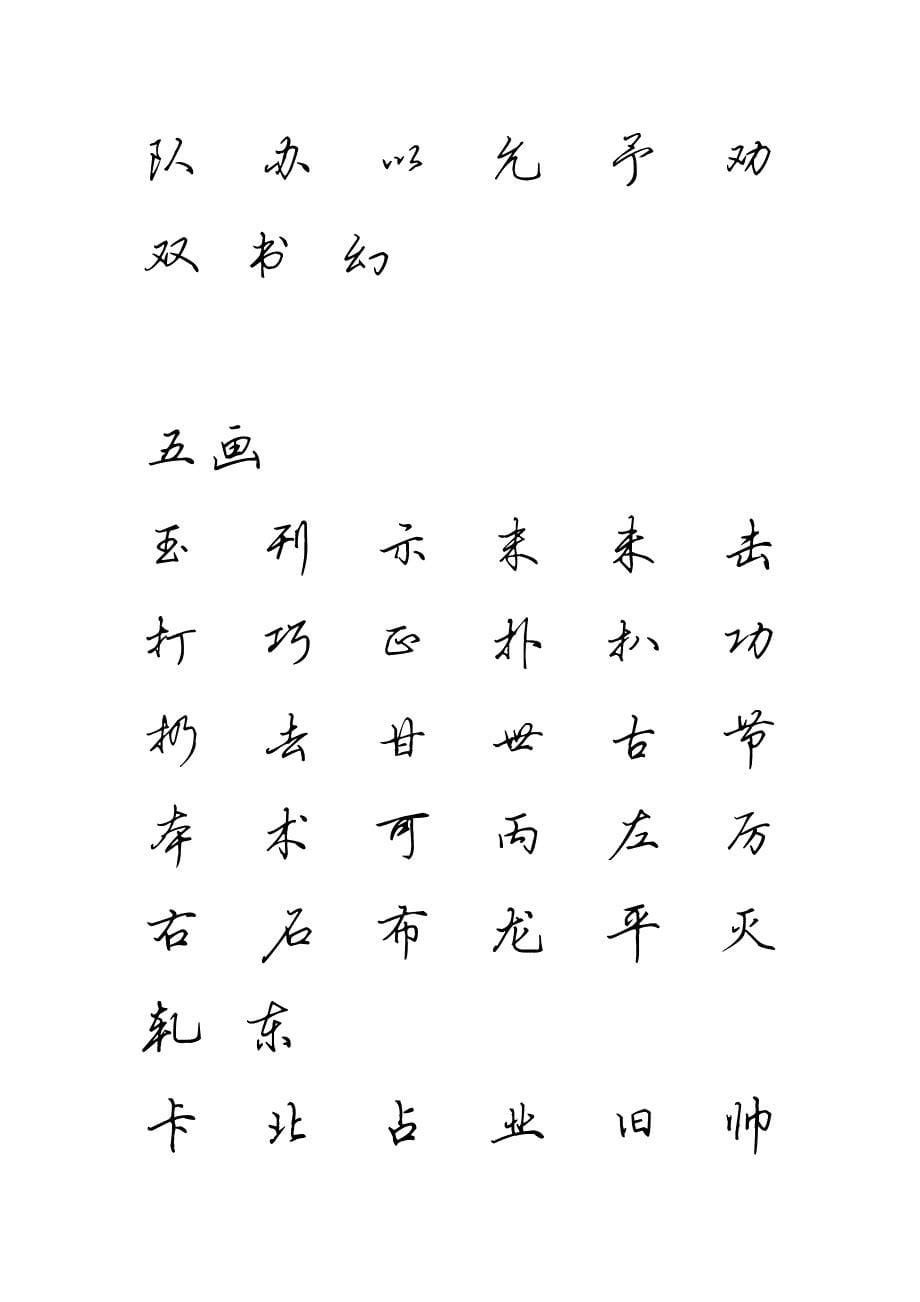 队 办 以 允 予 劝
双 书 幻
五画
玉 刊 示 末 未 击
打 巧 正 扑 扒 功
扔 去 甘 世 古 节
本 术 可 丙 左 厉
右 石 布 龙 平 灭
轧 东
卡 北 占 业 旧 帅